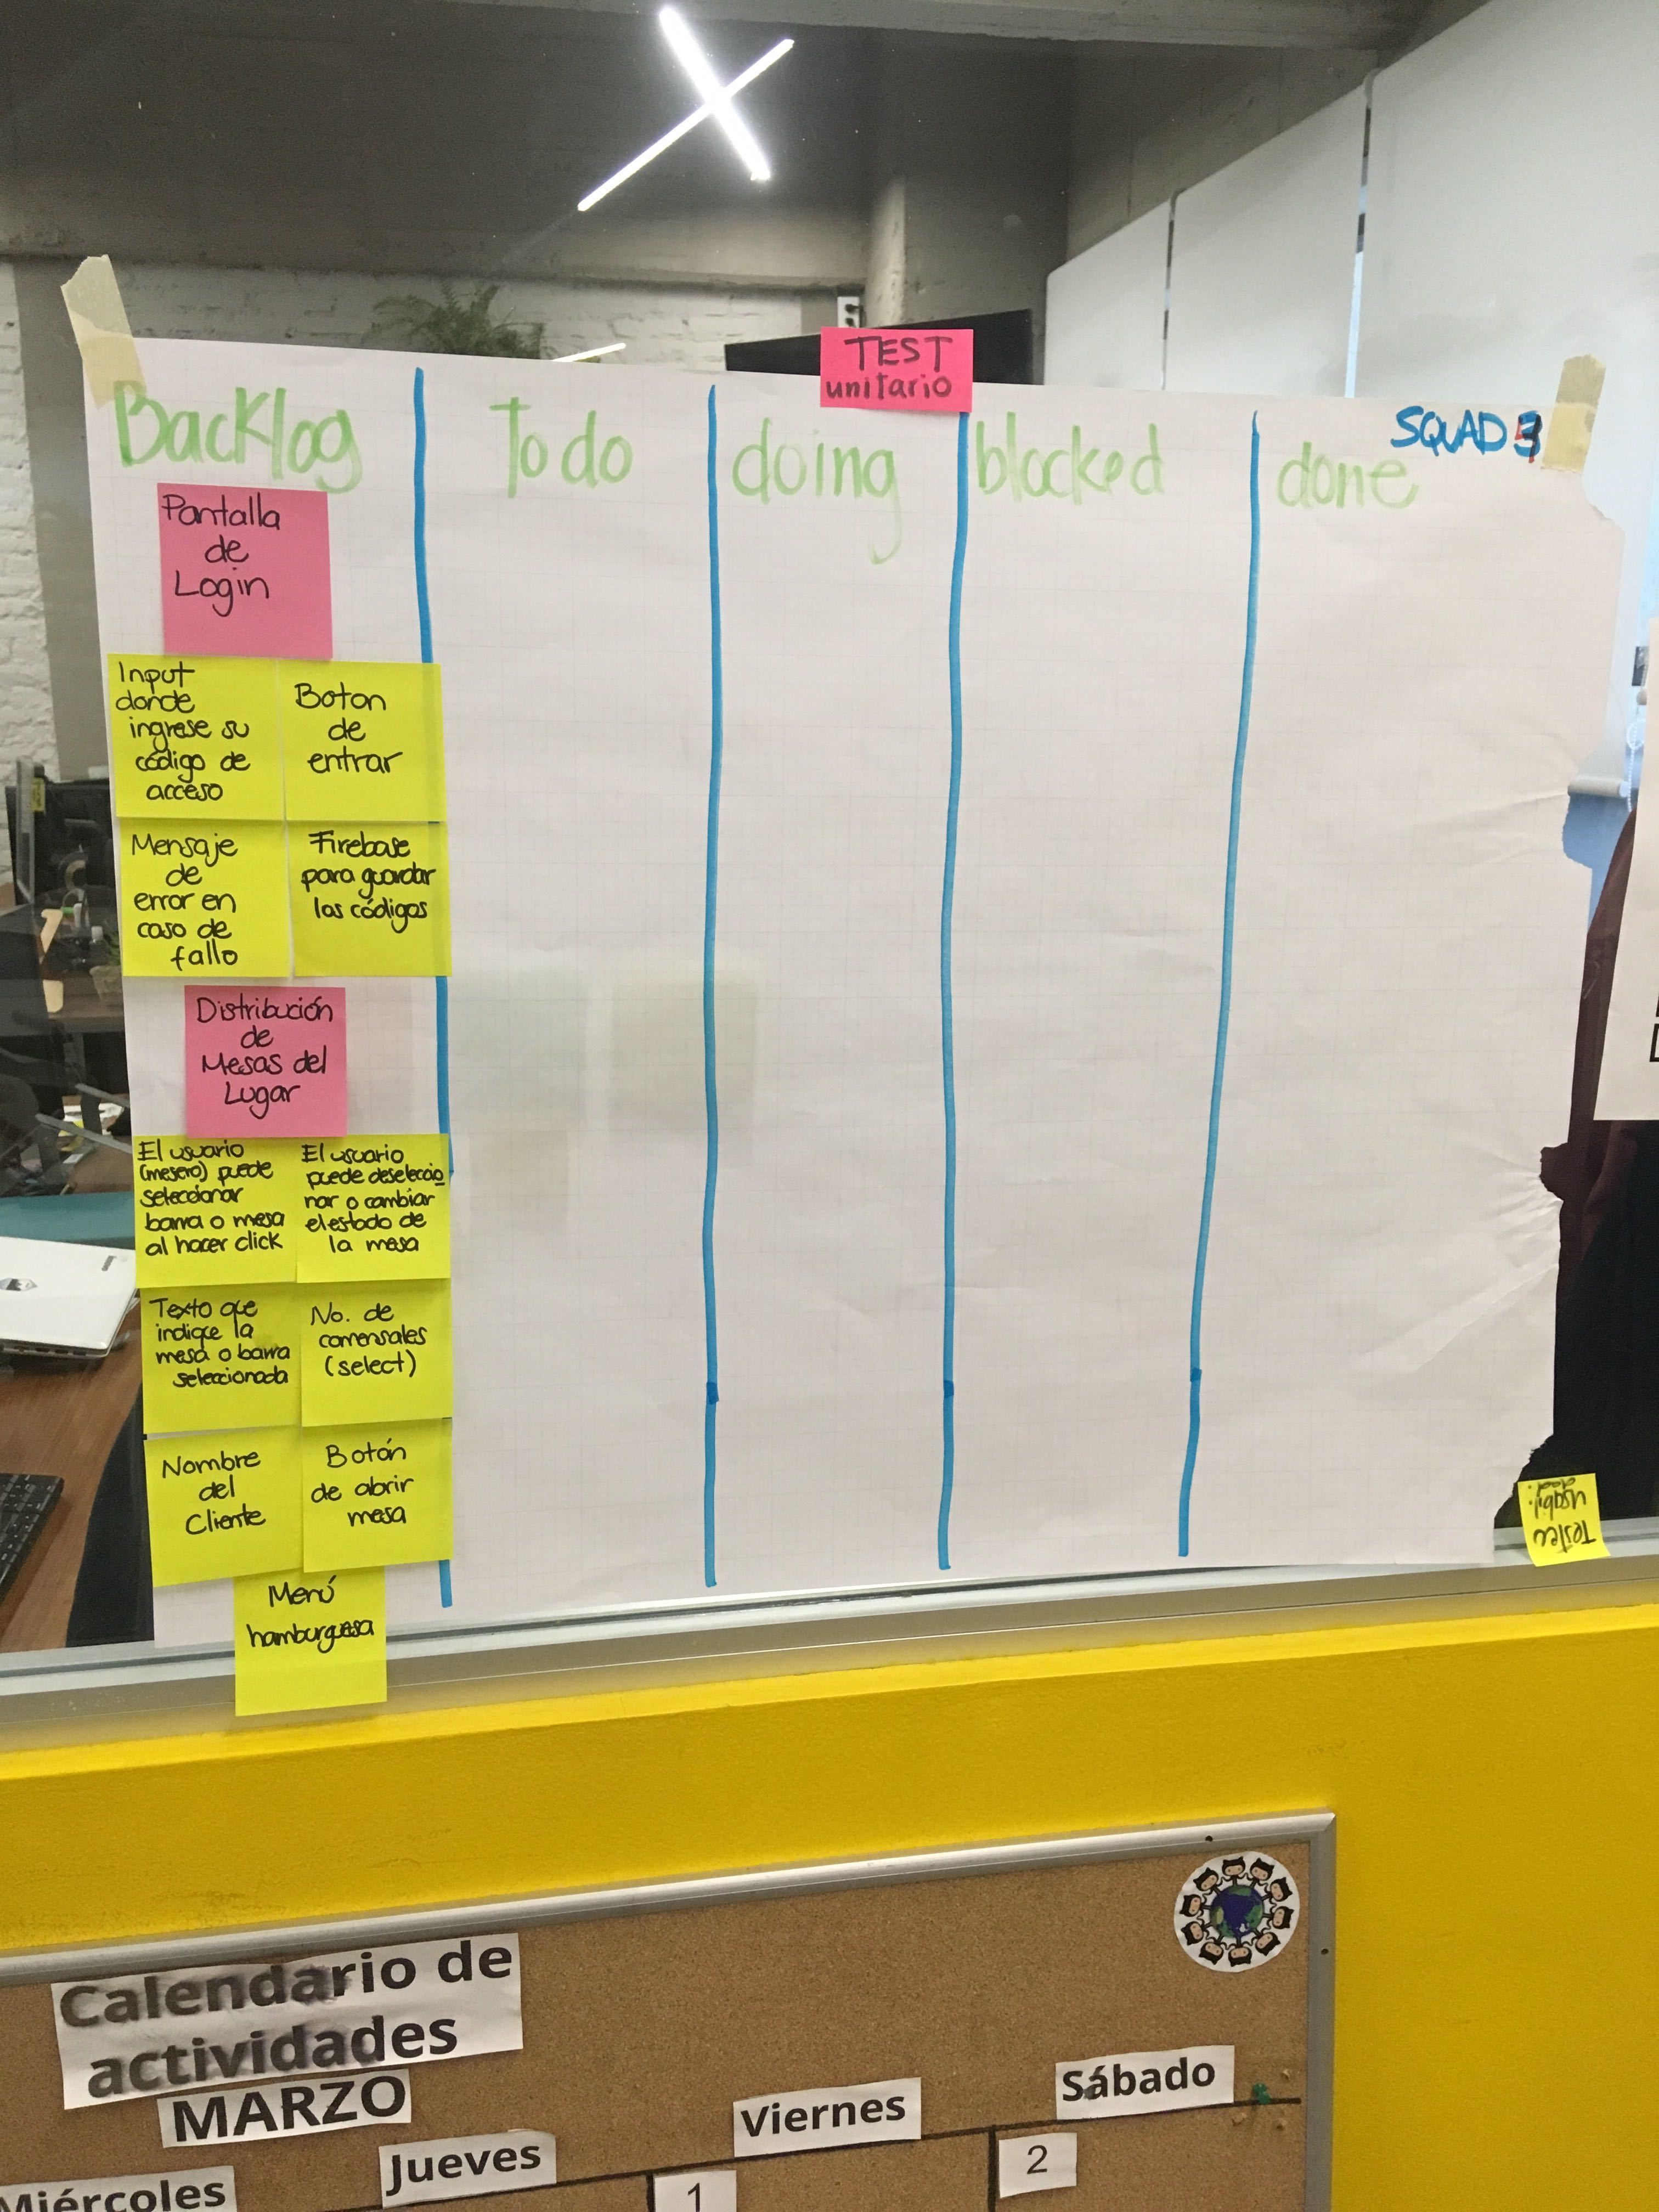 TEST
unitario
Backlog
To do
doing
blocked
done
SQUAD
Pantalla
de
Login
Input
donde
ingrese su
código de
acceso
Boton
de
entrar
Mensaje
de
error en
caso de
fallo
Firebase
para guardar
los códigos
Distribución
de
Mesas del
Lugar
El usuario
(mesero) puede
seleccionar
barra o mesa
al hacer click
El usuario
puede deseleccio
nar o cambiar
el estado de
la mesa
Texto que
indique la
mesa o barra
seleccionada
No. de
comensales
(select)
Nombre
del
Cliente
Botón
de abrir
mesa
Menú
hamburguesa
Calendario de
actividades
MARZO
Miércoles
Jueves
Viernes
Sábado
1
2